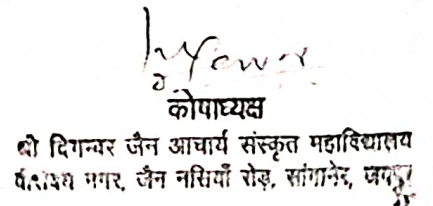 कोषाध्यक्ष
श्री दिगम्बर जैन आचार्य संस्कृत महाविद्यालय
नगर, जैन नसियाँ रोड़, सांगानेर, जयपुर